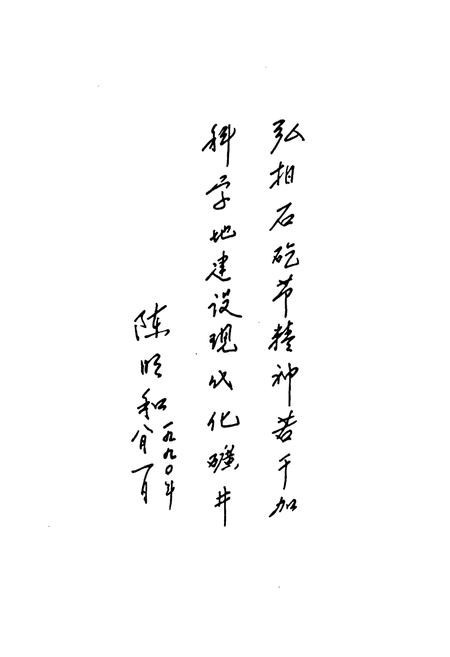 弘扬石圪节精神苦干加
科学地建设现代化礦井
陈明和
一九九〇年
八月一日